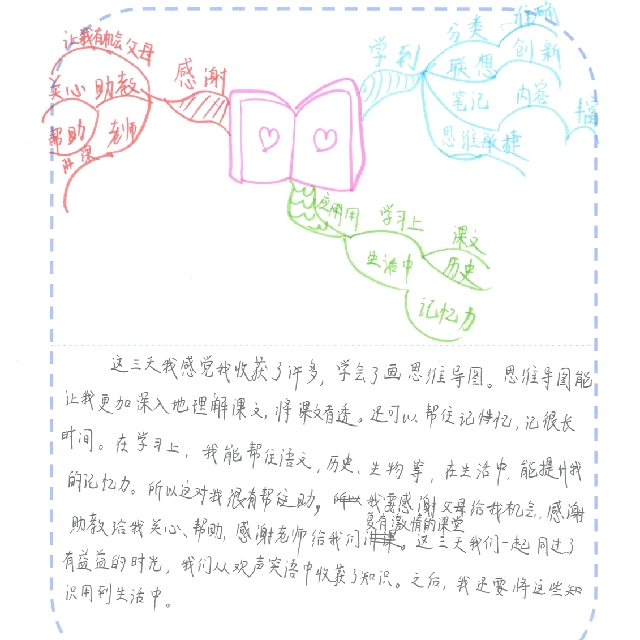 让我有机会父母
关心 助教
帮助 老师
讲课
感谢
学到
分类 准确
联想 创新
笔记 内容 丰富
思维敏捷
应用用
学习上 课文
历史
生活中
记忆力
这三天我感觉我收获了许多，学会了画思维导图。思维导图能
让我更加深入地理解课文，将课文看透。还可以帮住记性忆，记很长
时间。在学习上，我能帮住语文，历史、生物等，在生活中，能提升我
的记忆力。所以这对我很有帮住助。我要感谢父母给我机会，感谢
助教给我关心、帮助，感谢老师给我们富有激情的课堂。这三天我们一起同过了
有益益的时光，我们从欢声笑语中收获了知识。之后，我还要将这些知
识用到生活中。